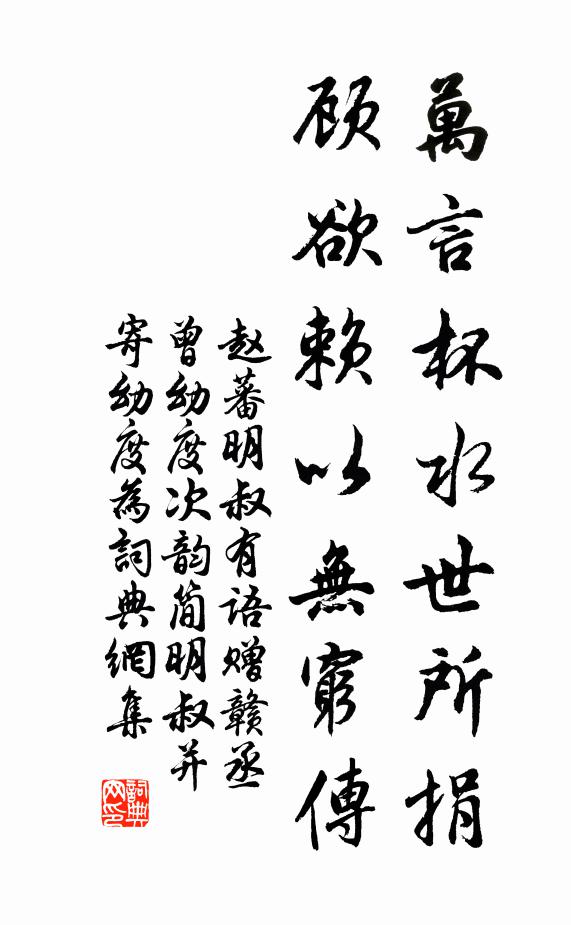 萬言杯水世所捐
顾欲賴以無窮傳
赵蕃明叔有语赠贛丞
曾幼度次韵简明叔并
寄幼度為詞典網集
詞典网印